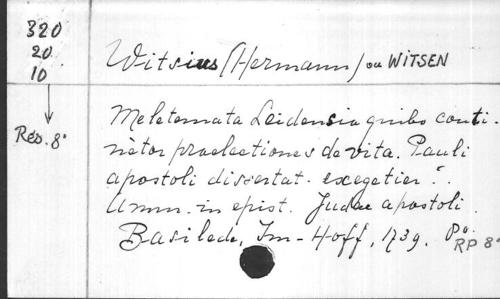 320
20
10
Rés. 8°
Witsius (Hermann) ou WITSEN
Meletemata Leidensia quibs conti-
netor praelectiones de vita. Pauli
apostoli dissertat. exegetier°.
Amm. in epist. Judae apostoli.
Basileae, Im-Hoff, 1739. P°.
RP 8°